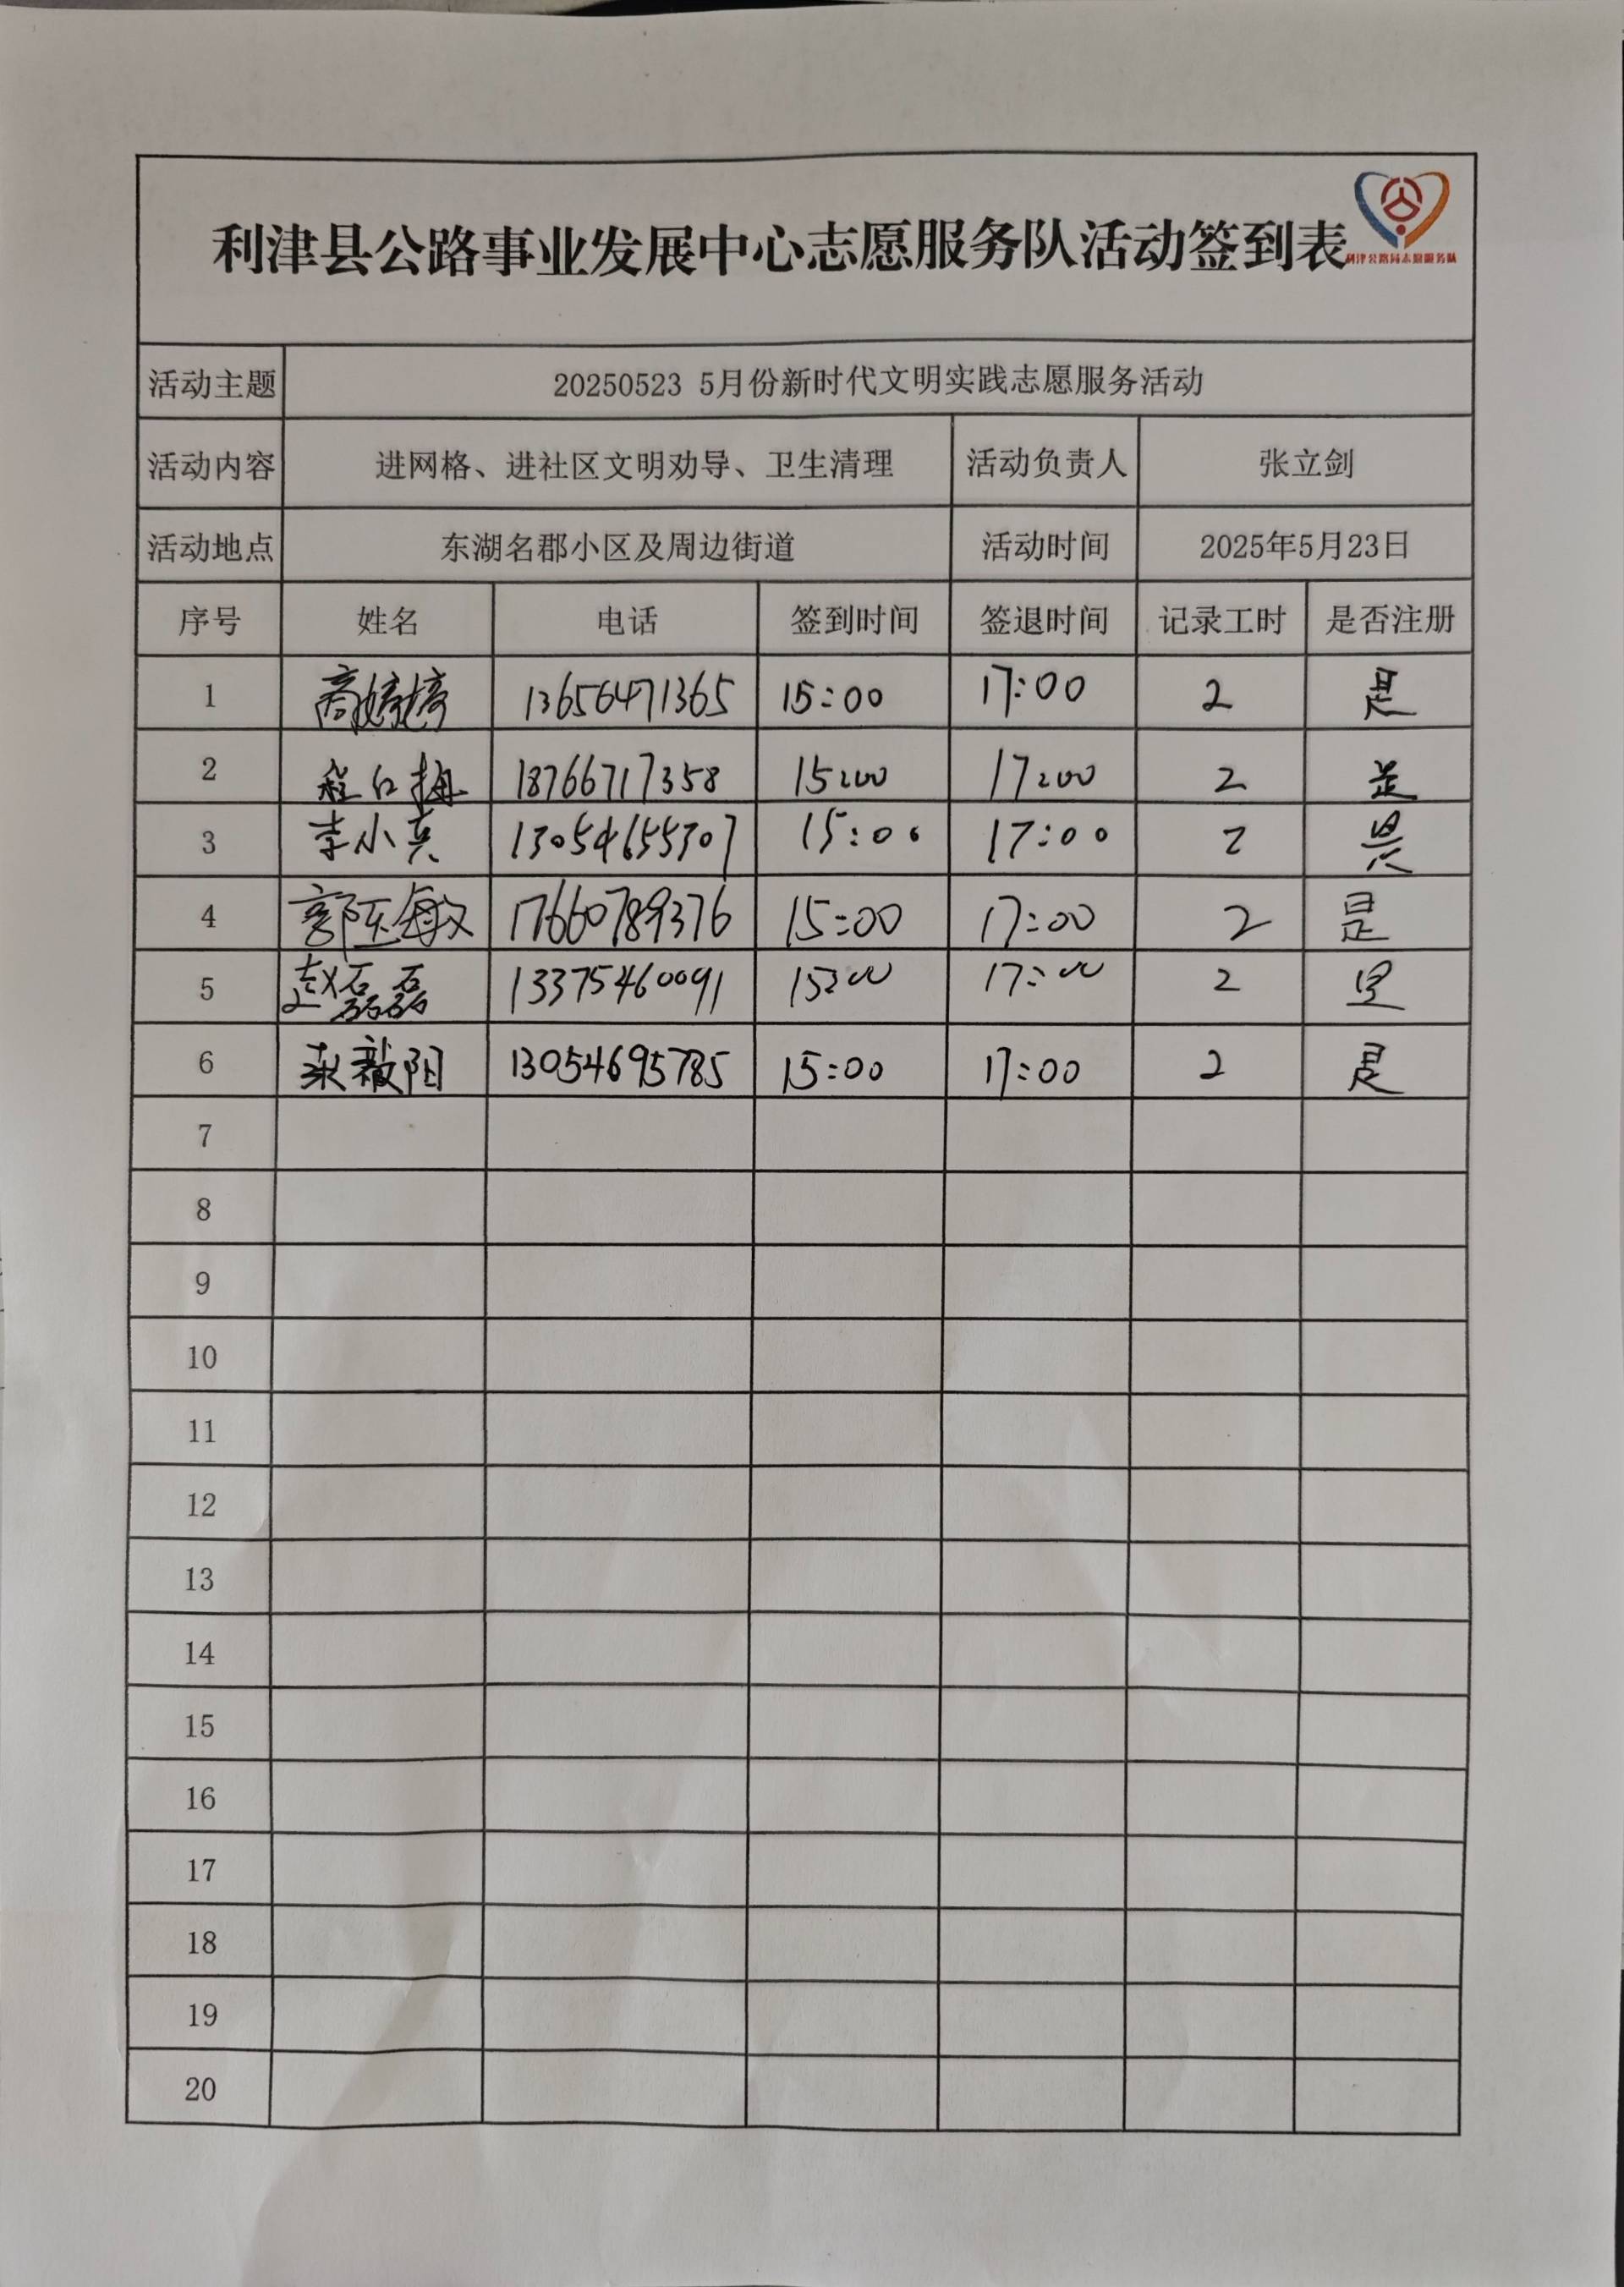 利津县公路事业发展中心志愿服务队活动签到表
利津公路局志愿服务队
活动主题 20250523 5月份新时代文明实践志愿服务活动
活动内容 进网格、进社区文明劝导、卫生清理 活动负责人 张立剑
活动地点 东湖名郡小区及周边街道 活动时间 2025年5月23日
序号 姓名 电话 签到时间 签退时间 记录工时 是否注册
1 高婷婷 13656471365 15:00 17:00 2 是
2 程红梅 18766717358 15:00 17:00 2 是
3 李小兵 13054655307 15:00 17:00 2 是
4 郭玉敏 17660789376 15:00 17:00 2 是
5 赵磊磊 13375460091 15:00 17:00 2 是
6 阳 13054695785 15:00 17:00 2 是
7
8
9
10
11
12
13
14
15
16
17
18
19
20